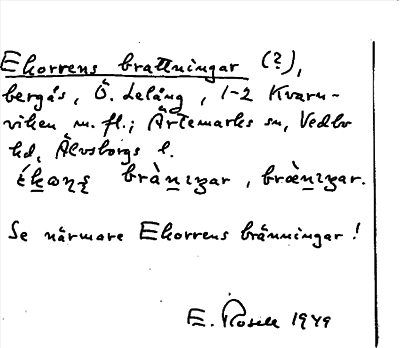 Ekorrens brattningar (?),
bergås, Ö. Lelång, 1-2 Kvarn-
viken m. fl.; Ärtemarks sn, Vedbo
hd, Älvsborgs l.
brànıŋar, brænıŋar.
Se närmare Ekorrens bränningar!
E. Rosell 1949